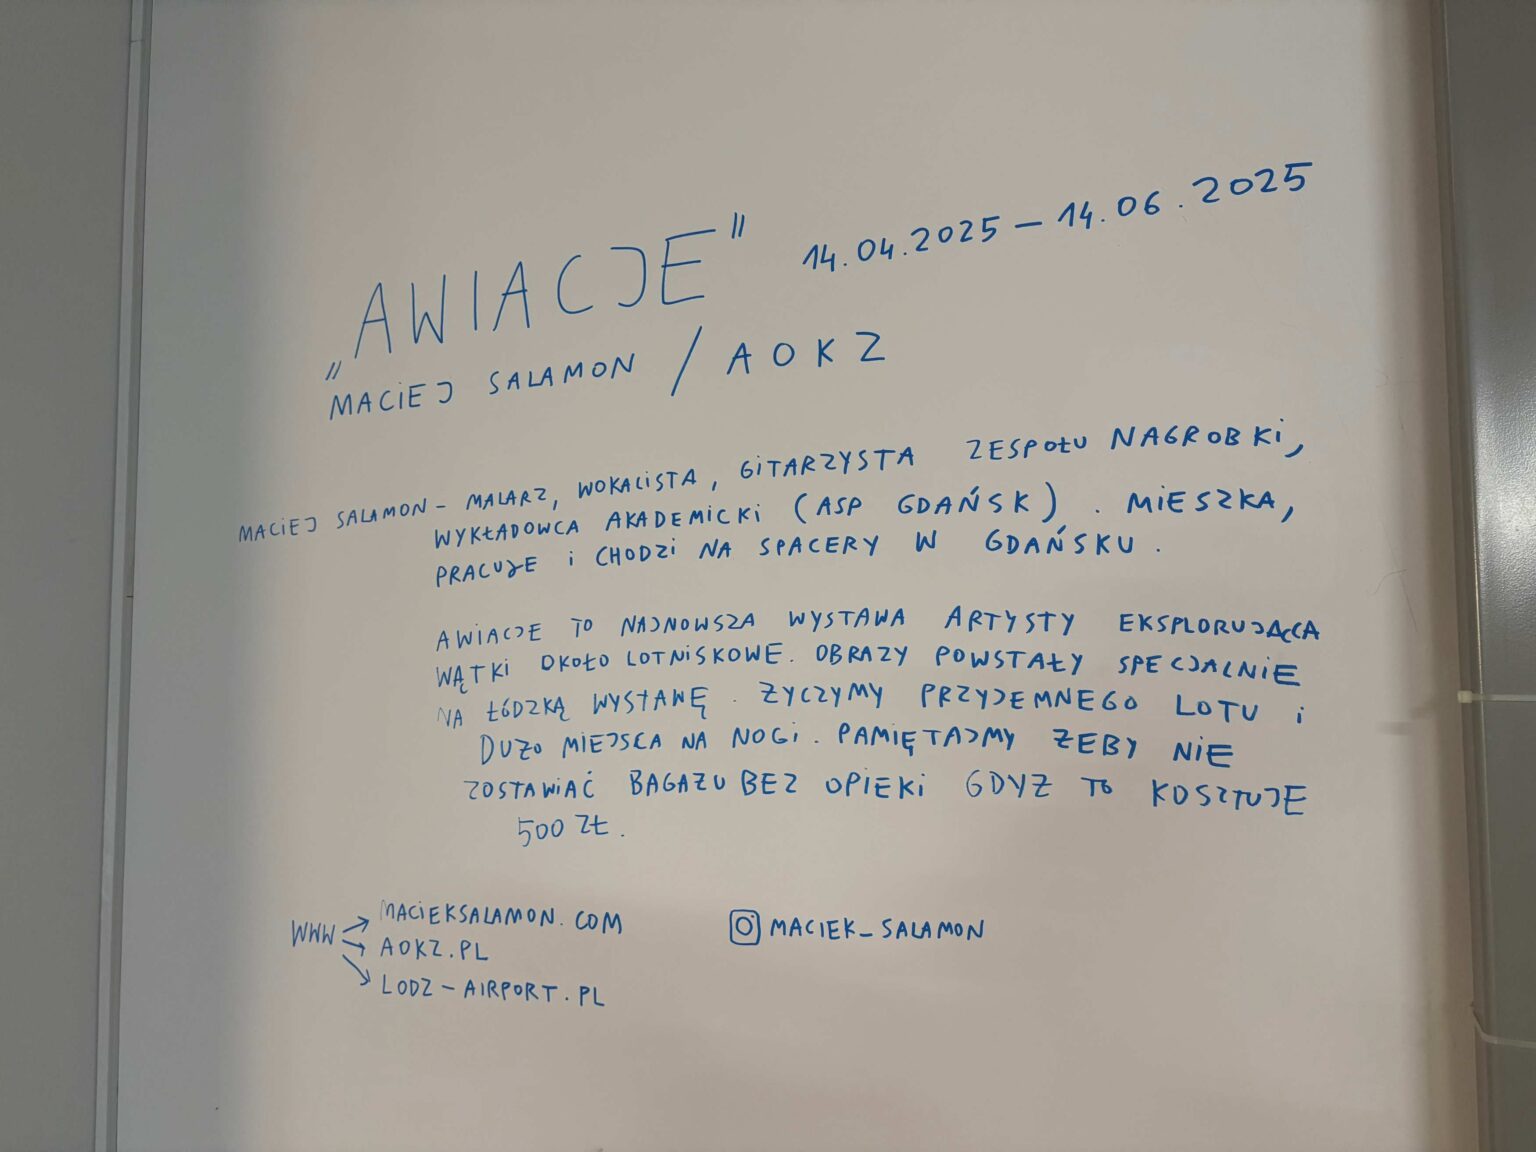 „AWIACJE" 14.04.2025 – 14.06.2025
MACIEJ SALAMON / AOKZ
MACIEJ SALAMON – MALARZ, WOKALISTA, GITARZYSTA ZESPOŁU NAGROBKI,
WYKŁADOWCA AKADEMICKI (ASP GDAŃSK). MIESZKA,
PRACUJE I CHODZI NA SPACERY W GDAŃSKU.
AWIACJE TO NAJNOWSZA WYSTAWA ARTYSTY EKSPLORUJĄCCA
WĄTKI OKOŁO LOTNISKOWE. OBRAZY POWSTAŁY SPECJALNIE
NA ŁÓDZKĄ WYSTAWĘ. ŻYCZYMY PRZYJEMNEGO LOTU I
DUŻO MIEJSCA NA NOGI. PAMIĘTAJMY ŻEBY NIE
ZOSTAWIAĆ BAGAŻU BEZ OPIEKI GDYŻ TO KOSZTUJE
500 ZŁ.
WWW MACIEKSALAMON.COM
AOKZ.PL
LODZ-AIRPORT.PL
MACIEK_SALAMON